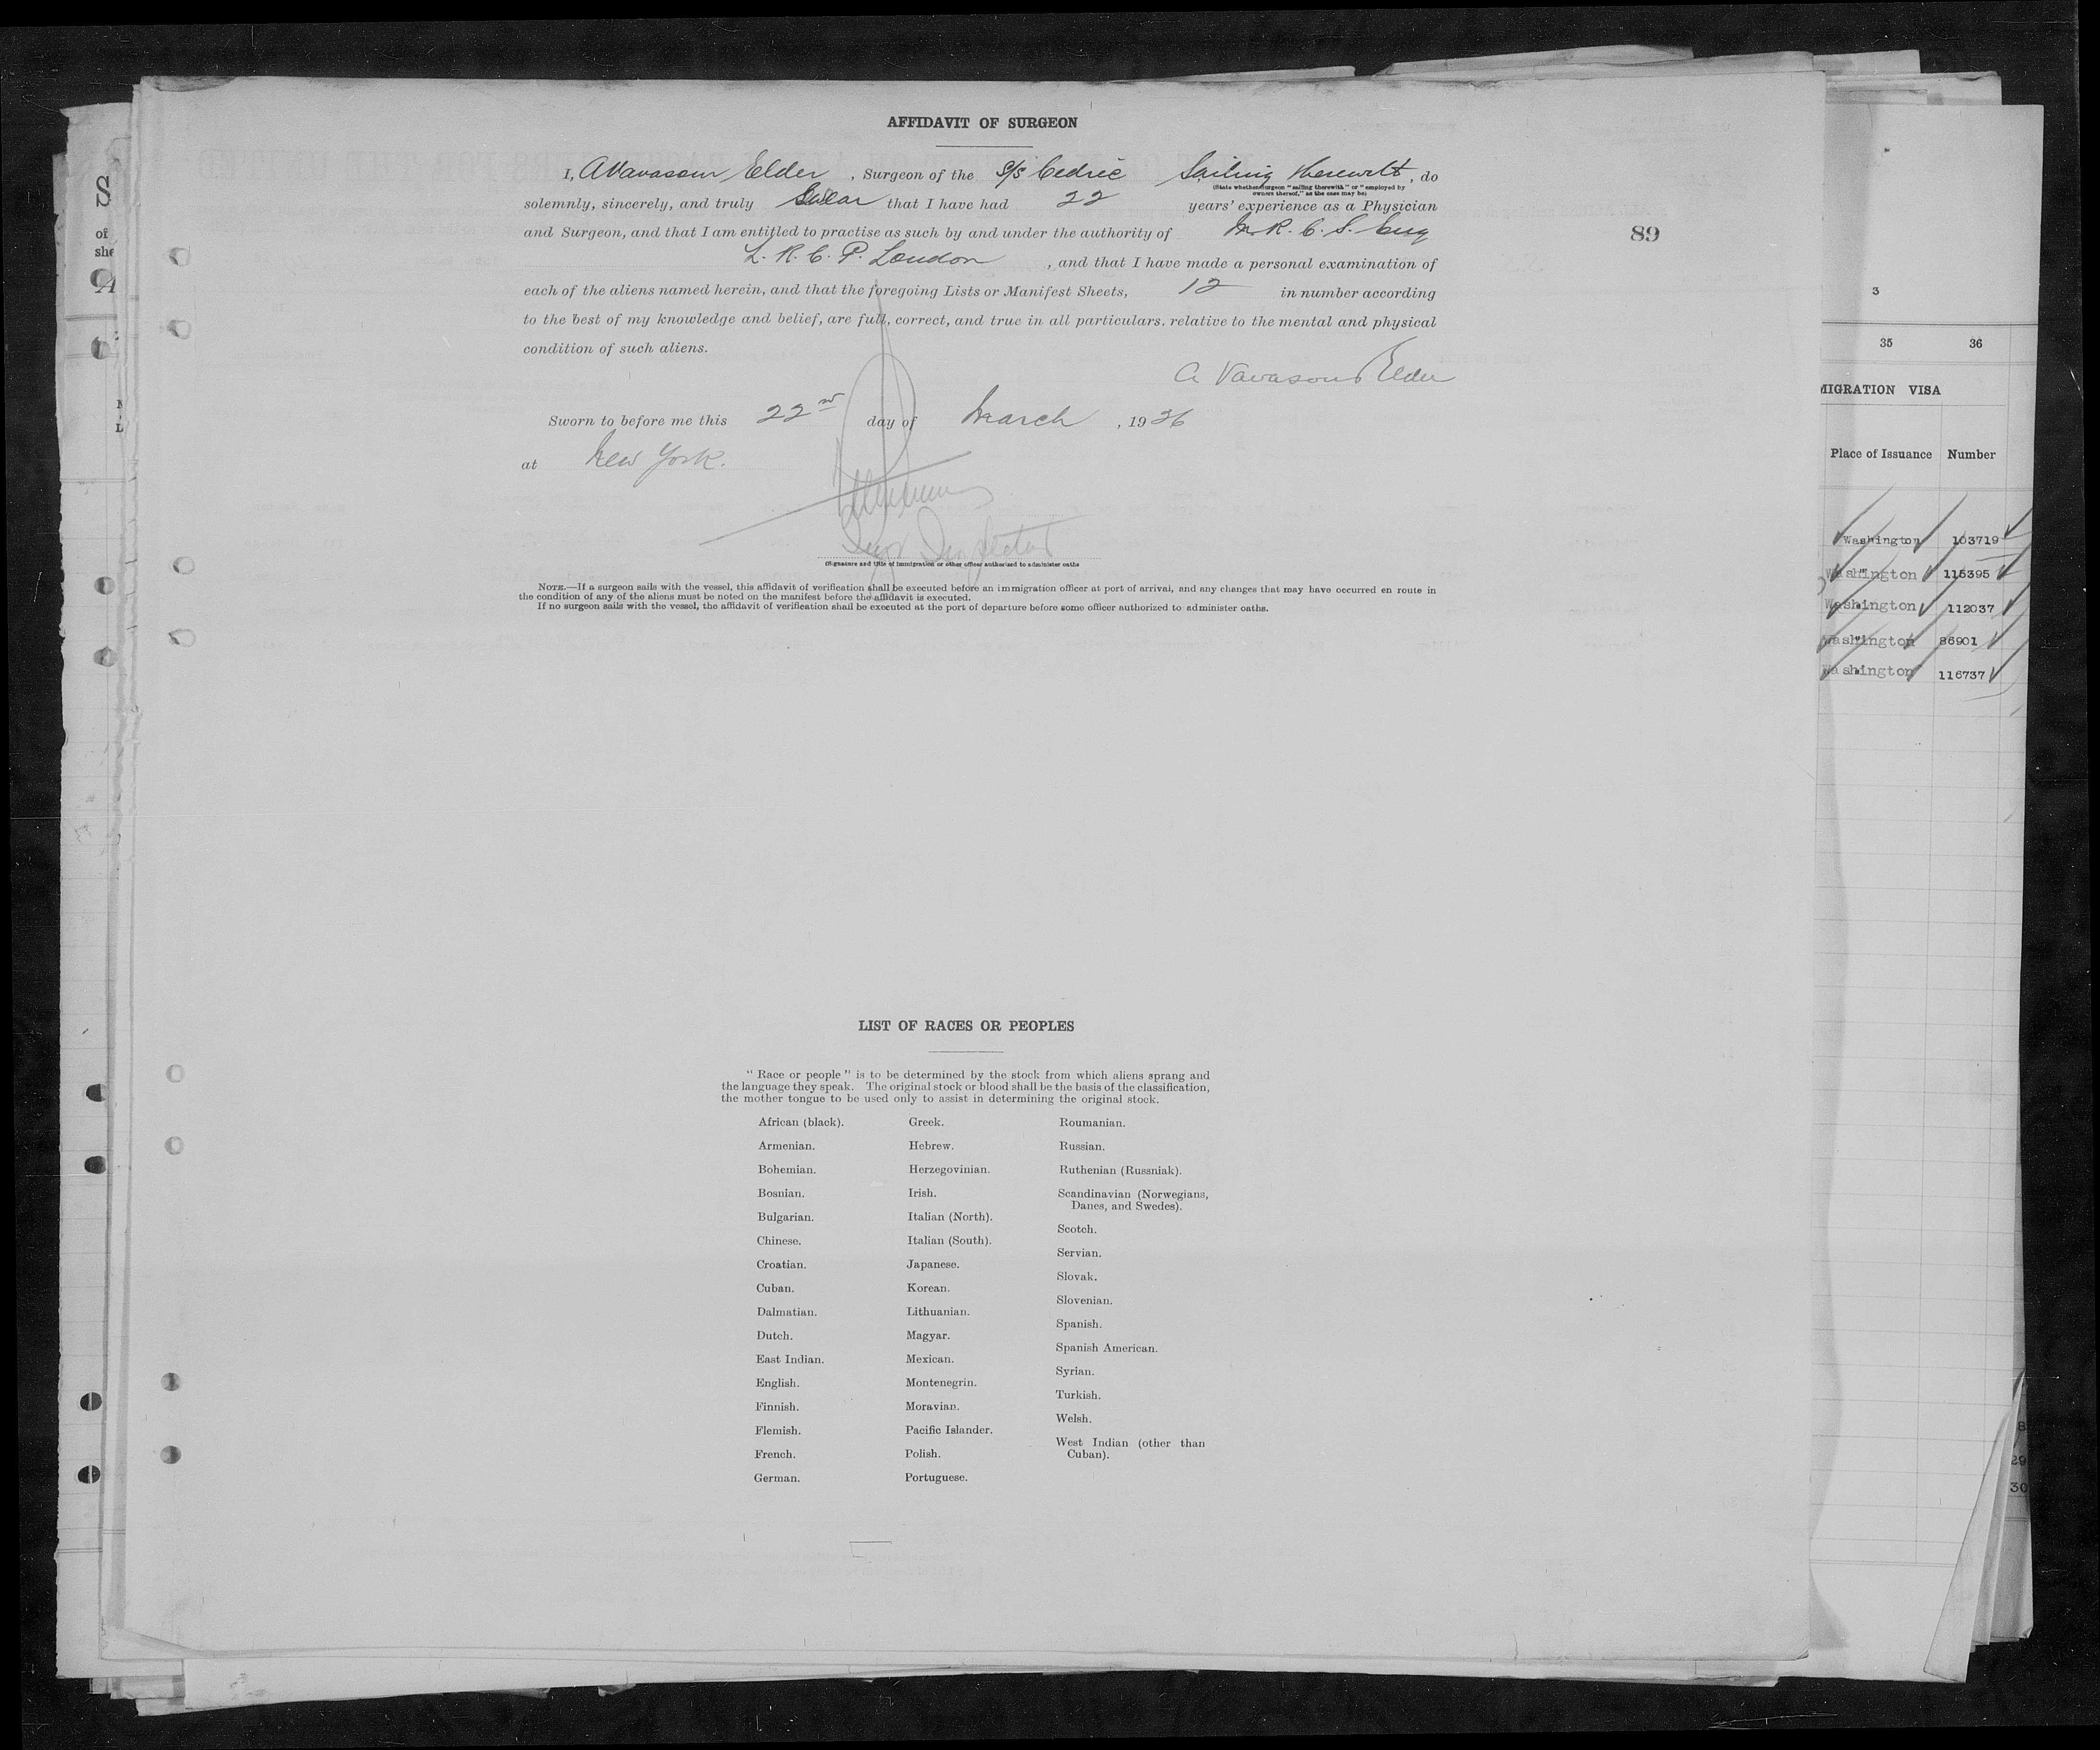 AFFIDAVIT OF SURGEON
I, A Vavasour Elder, Surgeon of the S/S Cedric Sailing therewith, do
(State whether surgeon "sailing therewith" or "employed by
owners thereof," as the case may be)
solemnly, sincerely, and truly Swear that I have had 22 years' experience as a Physician
and Surgeon, and that I am entitled to practise as such by and under the authority of M.R.C.S. Eng
L.R.C.P. London, and that I have made a personal examination of
each of the aliens named herein, and that the foregoing Lists or Manifest Sheets, 12 in number according
to the best of my knowledge and belief, are full, correct, and true in all particulars, relative to the mental and physical
condition of such aliens.
A Vavasour Elder
Sworn to before me this 22nd day of March, 1926
at New York.
Inspector
(Signature and title of immigration or other officer authorized to administer oaths
NOTE.—If a surgeon sails with the vessel, this affidavit of verification shall be executed before an immigration officer at port of arrival, and any changes that may have occurred en route in
the condition of any of the aliens must be noted on the manifest before the affidavit is executed.
If no surgeon sails with the vessel, the affidavit of verification shall be executed at the port of departure before some officer authorized to administer oaths.
89
LIST OF RACES OR PEOPLES
"Race or people" is to be determined by the stock from which aliens sprang and
the language they speak. The original stock or blood shall be the basis of the classification,
the mother tongue to be used only to assist in determining the original stock.
African (black).
Armenian.
Bohemian.
Bosnian.
Bulgarian.
Chinese.
Croatian.
Cuban.
Dalmatian.
Dutch.
East Indian.
English.
Finnish.
Flemish.
French.
German.
Greek.
Hebrew.
Herzegovinian.
Irish.
Italian (North).
Italian (South).
Japanese.
Korean.
Lithuanian.
Magyar.
Mexican.
Montenegrin.
Moravian.
Pacific Islander.
Polish.
Portuguese.
Roumanian.
Russian.
Ruthenian (Russniak).
Scandinavian (Norwegians,
Danes, and Swedes).
Scotch.
Servian.
Slovak.
Slovenian.
Spanish.
Spanish American.
Syrian.
Turkish.
Welsh.
West Indian (other than
Cuban).
S
of
she
3
35 36
MIGRATION VISA
Place of Issuance Number
Washington 103719
Washington 115395
Washington 112037
Washington 86901
Washington 116737
8
29
30